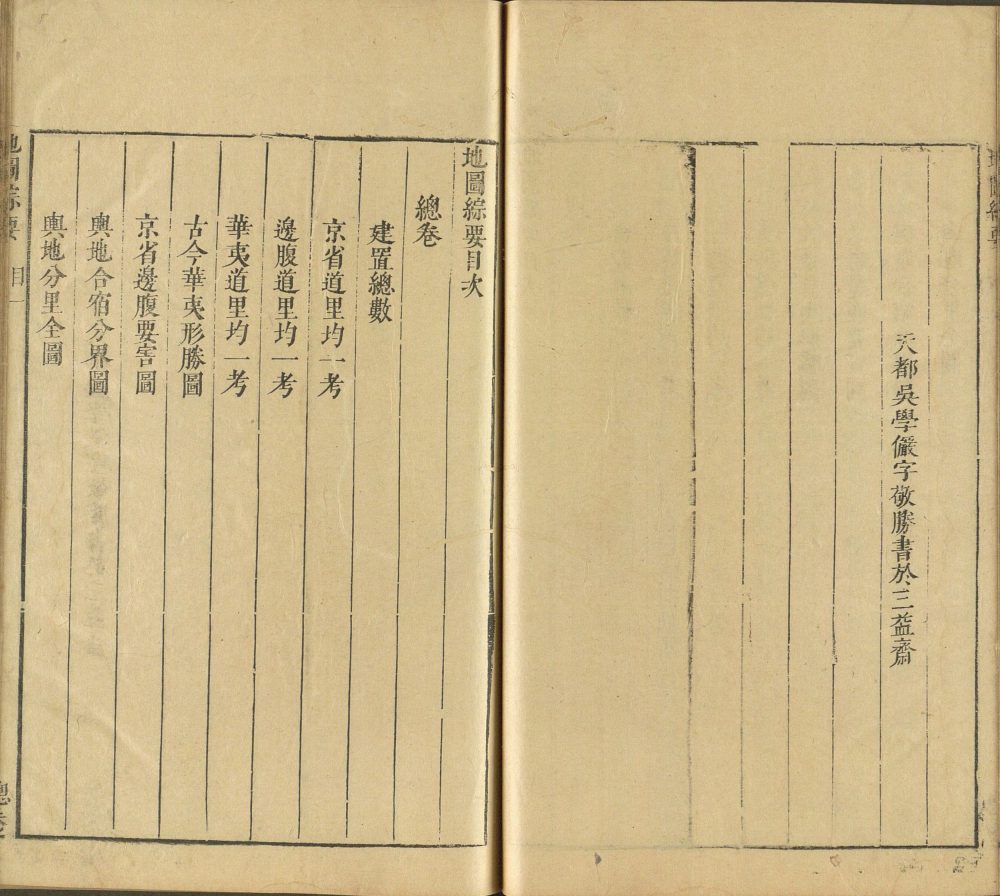 天都吳學儼字敬勝書於三益齋
地圖綜要目次
總卷
建置總數
京省道里均一考
邊腹道里均一考
華夷道里均一考
古今華夷形勝圖
京省邊腹要害圖
輿地合宿分界圖
輿地分里全圖
地圖綜要 目一
總卷